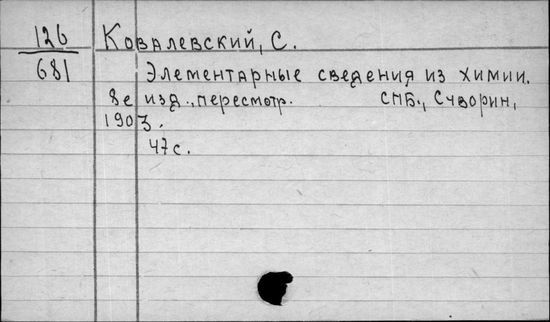 126 Ковалевский, С.
681 Элементарные сведения из химии.
8е изд., пересмотр. СПБ., Суворин,
1903.
47с.